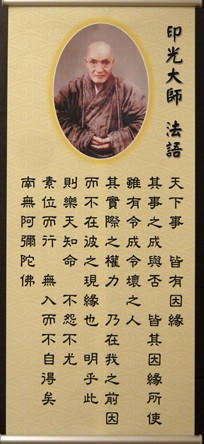 印光大師 法語
天下事 皆有因緣
其事之成與否 皆其因緣所使
雖有令成令壞之人
其實際之權力 乃在我之前因
而不在彼之現緣也 明乎此
則樂天知命 不怨不尤
素位而行 無入而不自得矣
南無阿彌陀佛